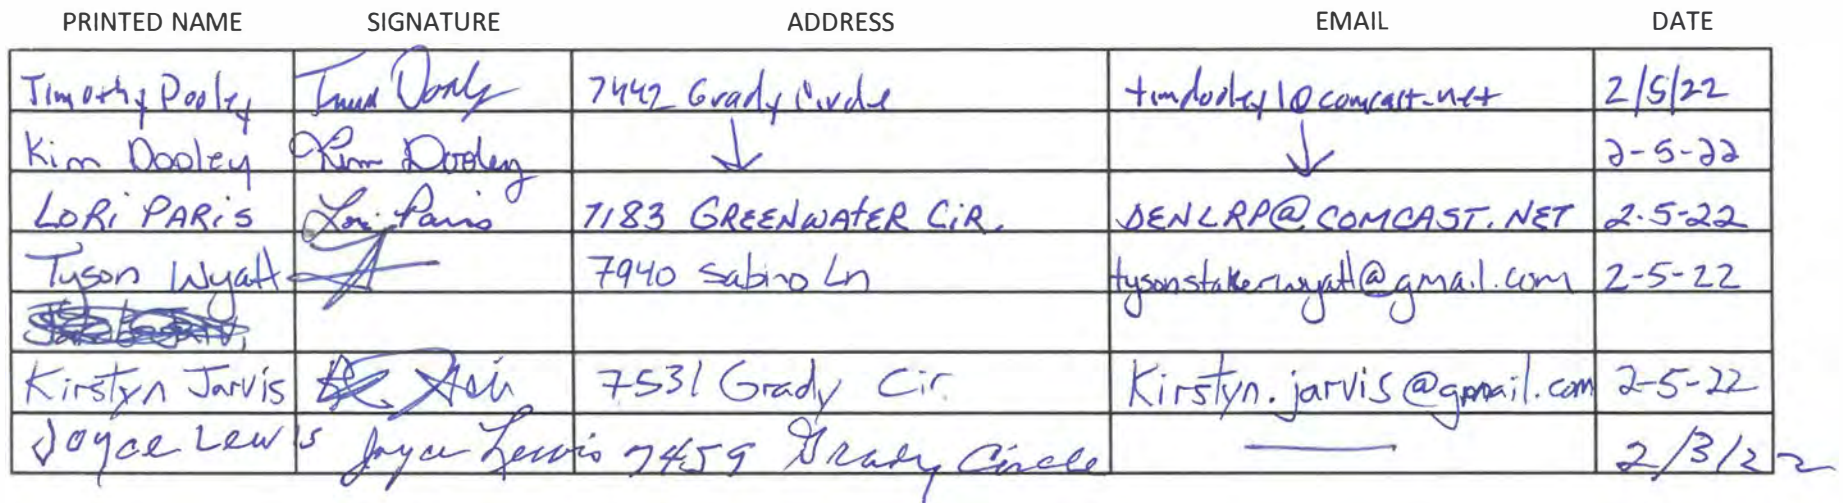 PRINTED NAME SIGNATURE ADDRESS EMAIL DATE
Timothy Dooley 7442 Grady Circle timdooley1@comcast.net 2/5/22
Kim Dooley Kim Dooley ↓ ↓ 2-5-22
LORi PARiS Lori Paris 7183 GREENWATER CiR. DENLRP@COMCAST.NET 2-5-22
Tyson Wyatt 7940 Sabino Ln tysonstakerwyatt@gmail.com 2-5-22
Kirstyn Jarvis 7531 Grady Cir. Kirstyn.jarvis@gmail.com 2-5-22
Joyce Lewis Joyce Lewis 7459 Grady Circle — 2/3/22